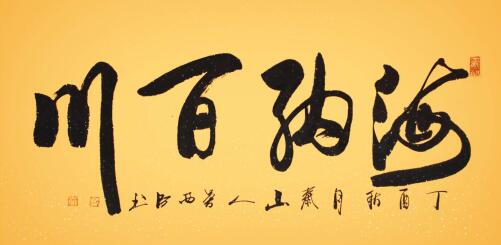 海纳百川
丁酉秋月山人西书